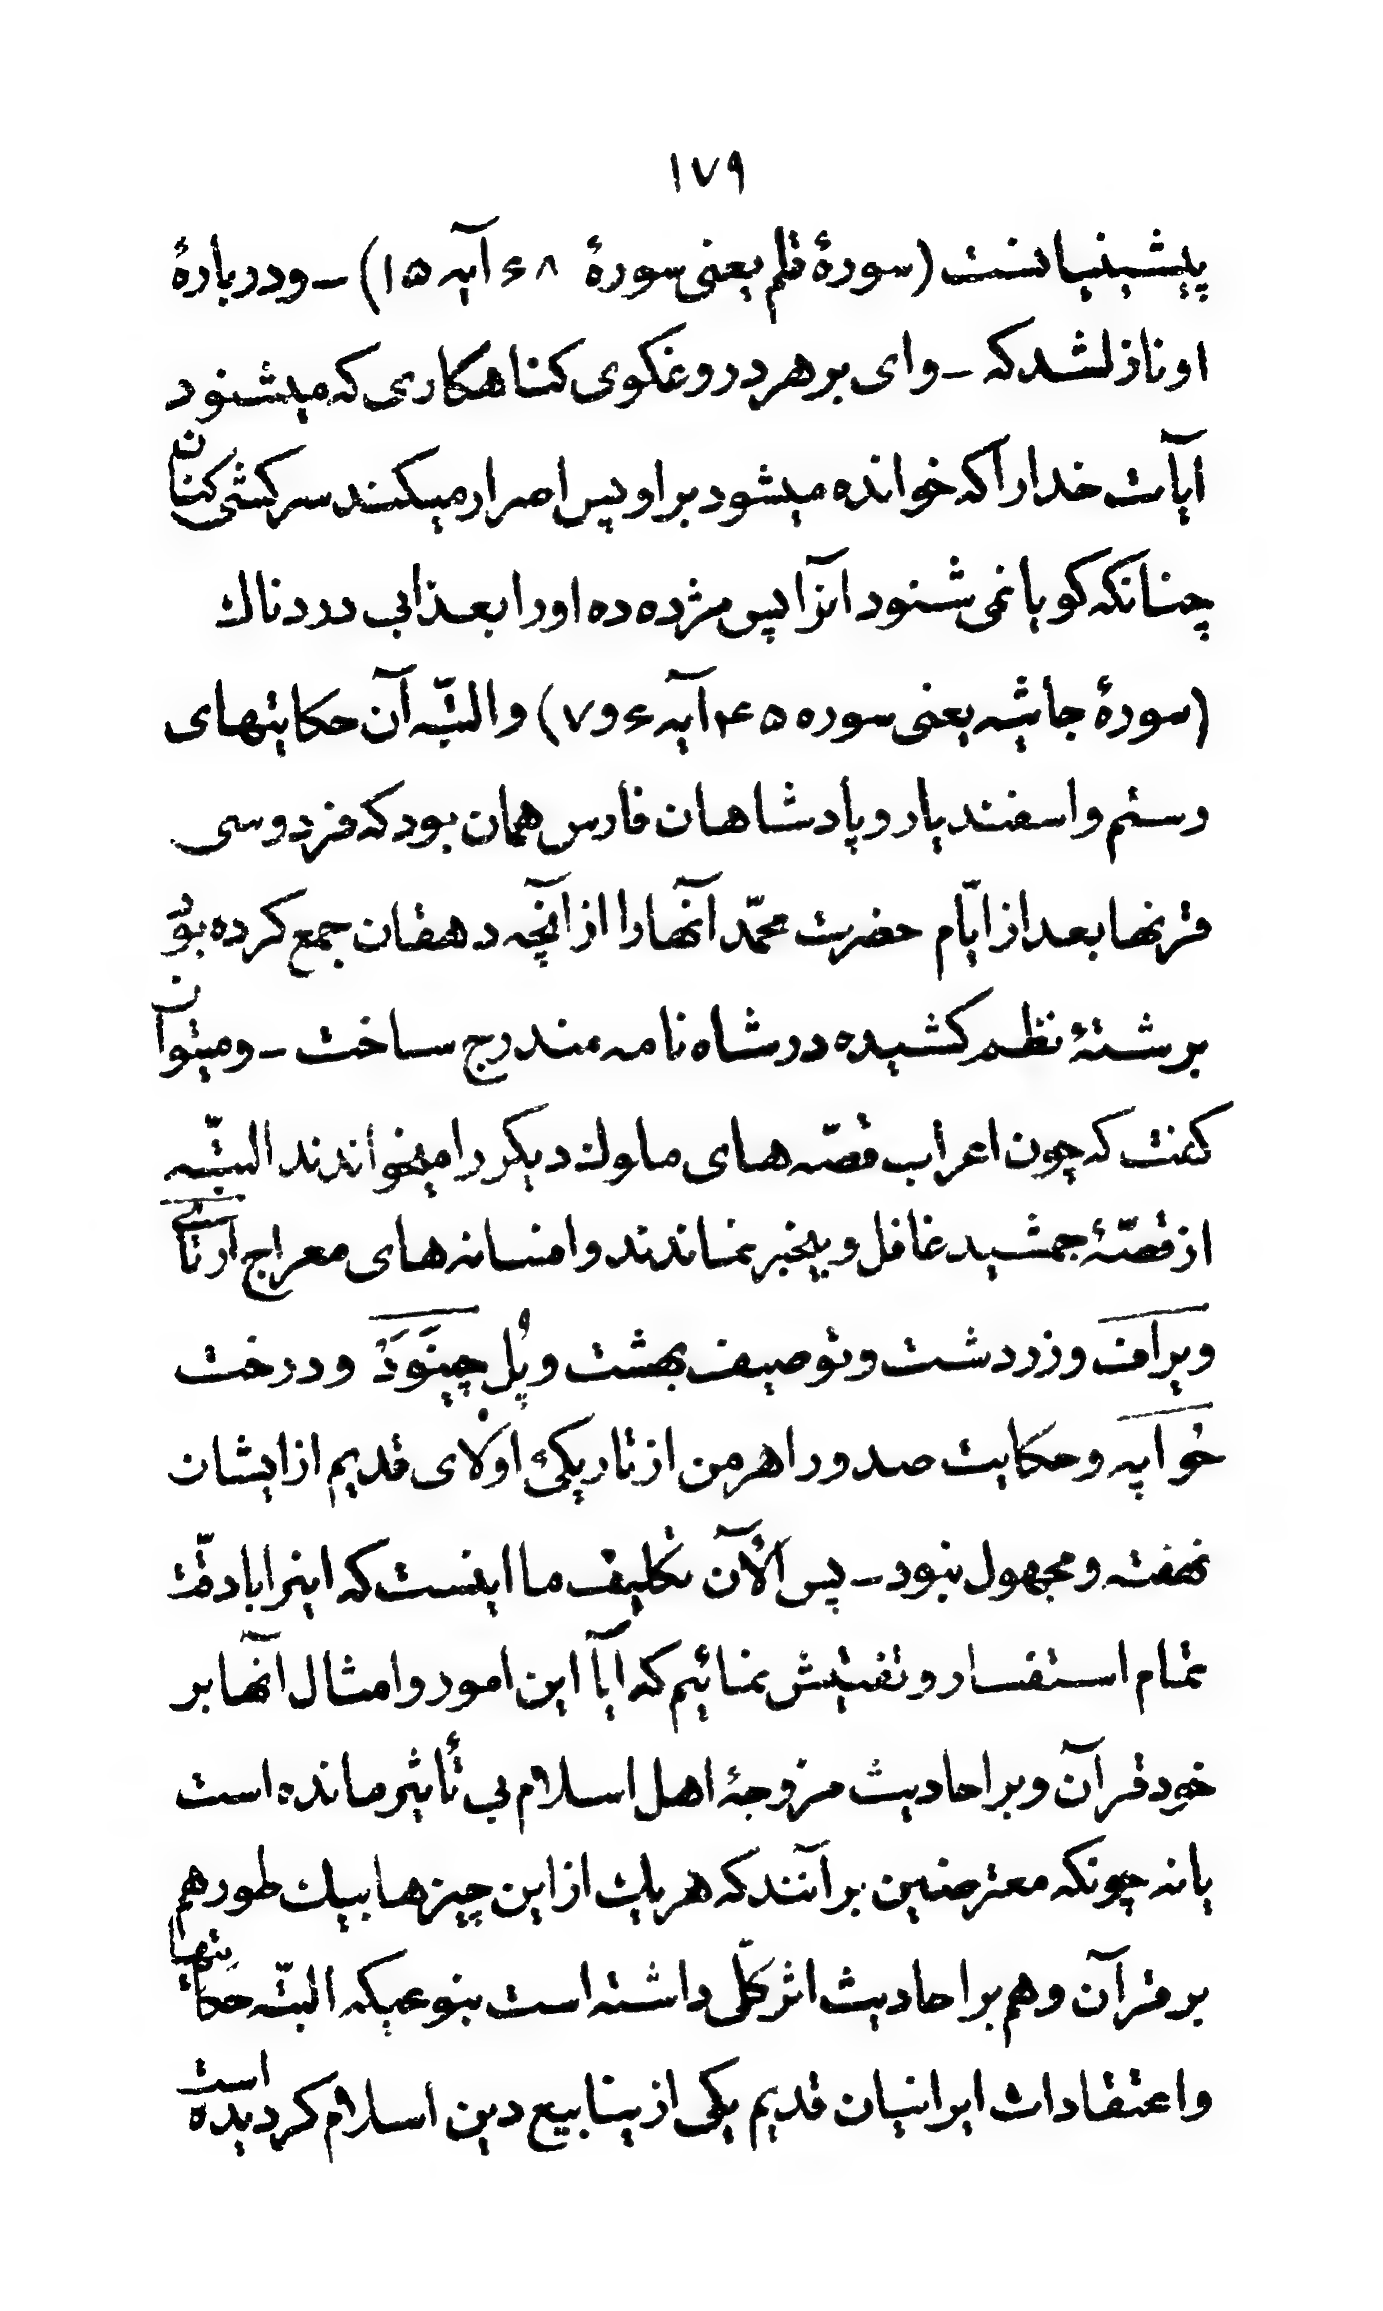 ۱۷۹
پیشینیانست (سورهٔ قلم یعنی سورهٔ ۶۸ آیه ۱۵) ــ و دربارهٔ
او نازلشد که ــ وای بر هر دروغکوی کناهکاری که میشنود
آیات خدارا که خوانده میشود بر او پس اصرار میکند سرکشی کنان
چنانکه کویا نمی شنود آنرا پس مژده ده اورا بعذابی دردناك
(سورهٔ جاثیه یعنی سوره ۴۵ آیه ۶ و ۷) و البتّه آن حکایتهای
رستم و اسفندیار و پادشاهان فارس همان بود که فردوسی
قرنها بعد از ایّام حضرت محمّد آنهارا از آنچه دهقان جمع کرده بود
برشتهٔ نظم کشیده در شاه نامه مندرج ساخت ــ و میتوان
کفت که چون اعراب قصّه های ملوك دیکر را میخواندند البتّه
از قصّهٔ جمشید غافل و بیخبر نماندند و افسانه های معراج ارتای
ویراف و زردشت و توصیف بهشت و پُل چِینَوَدْ و درخت
حُوابه و حکایت صدور اهرمن از تاریکیٔ اوّلای قدیم از ایشان
نهفته و مجهول نبود ــ پس الآن تکلیف ما اینست که اینرا بادقّت
تمام استفسار و تفتیش نمائیم که آیا این امور و امثال آنها بر
خود قرآن و بر احادیث مروجهٔ اهل اسلام بی تأثیر مانده است
یا نه چونکه معترضین بر آنند که هر یك از این چیزها بیك طور هم
بر قرآن و هم بر احادیث اثر کلّی داشته است بنوعیکه البتّه حکایتها
و اعتقادات ایرانیان قدیم یکی از ینابیع دین اسلام کردیده است